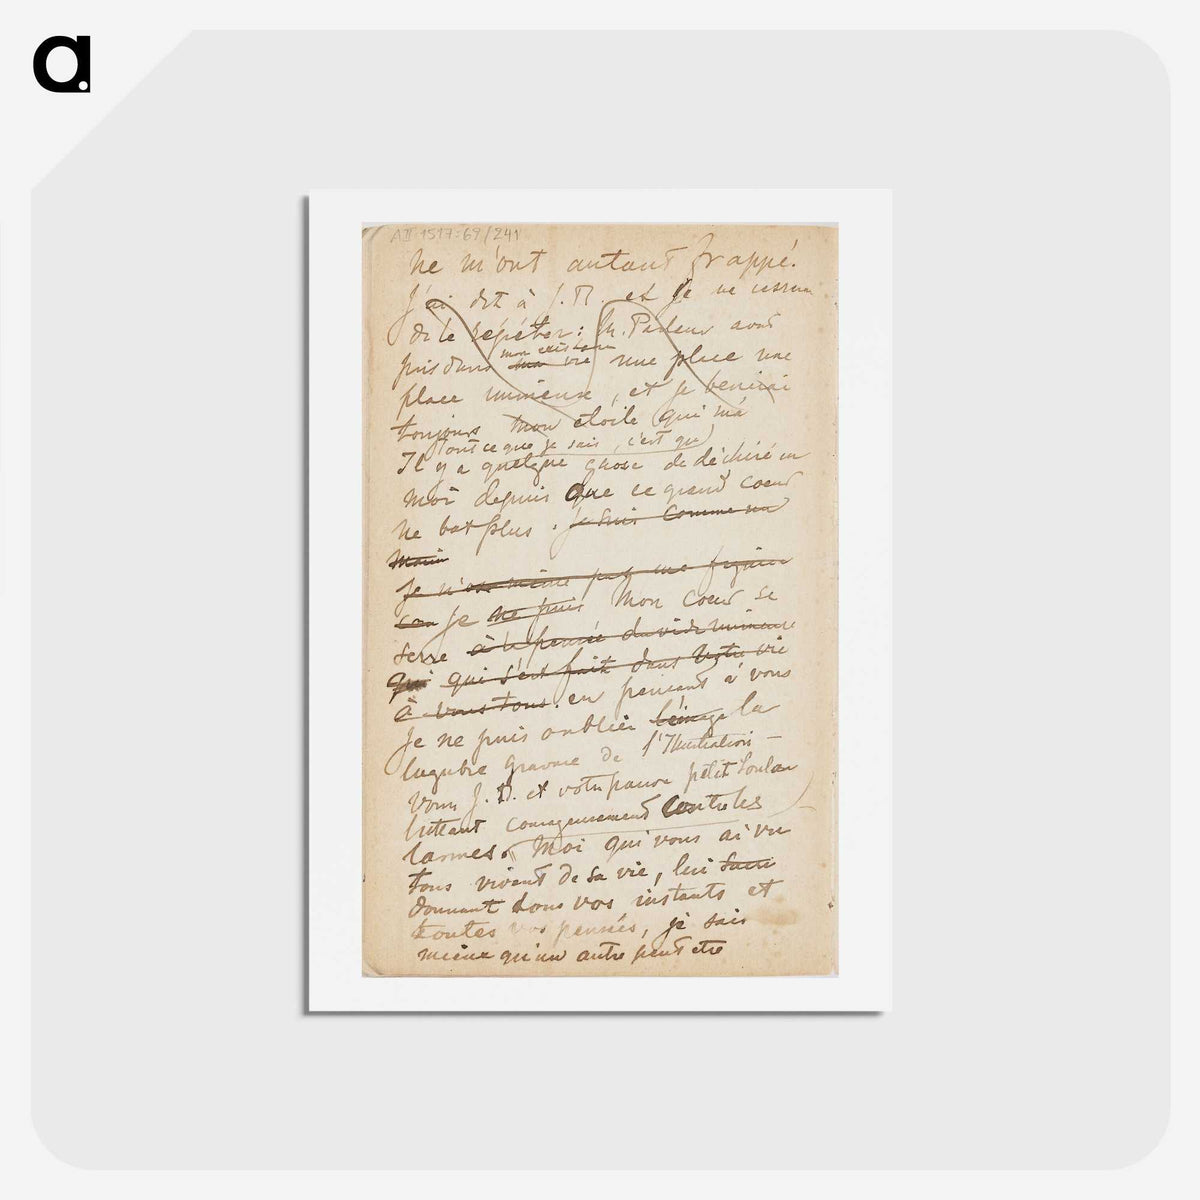 a.
A II 1517:69/241
ne m'ont autant frappé.
J'ai dit à J.B. et je ne cesserai
de le répéter: M. Pasteur avait
mon existence
pris dans ma vie une place une
place immense, et je bénirai
toujours mon étoile qui m'a
Tout ce que je sais, c'est que
Il y a quelque chose de déchiré en
moi depuis que ce grand coeur
ne bat plus. je suis comme un
Marin
Je n'ose même pas me figurer
Je ne puis Mon coeur se
serre à la pensée du vide immense
qui qui s'est fait dans votre vie
à vous tous. en pensant à vous
Je ne puis oublier l'image la
lugubre gravure de l'Illustration —
vous J.B. et votre pauvre petit
luttant courageusement contre les
larmes. Moi qui vous ai vu
tous vivent de sa vie, lui
donnant tous vos instants et
toutes vos pensées, je sais
mieux qu'un autre peut etre